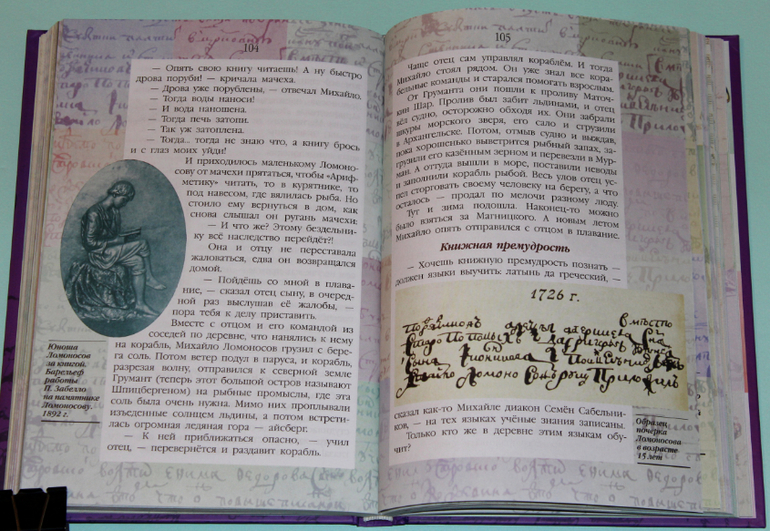 104
— Опять свою книгу читаешь! А ну быстро
дрова поруби! — кричала мачеха.
— Дрова уже порублены, — отвечал Михайло.
— Тогда воды наноси!
— И вода наношена.
— Тогда печь затопи.
— Так уж затоплена.
— Тогда... тогда не знаю что, а книгу брось
и с глаз моих уйди!
И приходилось маленькому Ломоно-
сову от мачехи прятаться, чтобы «Ариф-
метику» читать, то в курятнике, то
под навесом, где вялилась рыба. Но
стоило ему вернуться в дом, как
снова слышал он ругань мачехи:
— И что же? Этому бездельни-
ку всё наследство перейдёт?!
Она и отцу не переставала
жаловаться, едва он возвращался
домой.
— Пойдёшь со мной в плава-
ние, — сказал отец сыну, в очеред-
ной раз выслушав её жалобы, —
пора тебя к делу приставить.
Вместе с отцом и его командой из
соседей по деревне, что нанялись к нему
на корабль, Михайло Ломоносов грузил с бере-
га соль. Потом ветер подул в паруса, и корабль,
разрезая волну, отправился к северной земле
Грумант (теперь этот большой остров называют
Шпицбергеном) на рыбные промыслы, где эта
соль была очень нужна. Мимо них проплывали
изъеденные солнцем льдины, а потом встрети-
лась огромная ледяная гора — айсберг.
— К ней приближаться опасно, — учил
отец, — перевернётся и раздавит корабль.
Юноша
Ломоносов
за книгой.
Барельеф
работы
П. Забелло
на памятнике
Ломоносову.
1892 г.
105
Чаще отец сам управлял кораблём. И тогда
Михайло стоял рядом. Он уже знал все кора-
бельные команды и старался помогать взрослым.
От Груманта они пошли к проливу Маточ-
кин Шар. Пролив был забит льдинами, и отец
вёл судно, осторожно обходя их. Они забрали
шкуры морского зверя, его сало и сгрузили
в Архангельске. Потом, отмыв судно и выждав,
пока хорошенько выветрится рыбный запах, за-
грузили его казённым зерном и перевезли в Мур-
ман. А оттуда вышли в море, поставили неводы
и заполнили корабль рыбой. Весь улов отец ус-
пел сторговать своему человеку на берегу, а что
осталось — продал по мелочи разному люду.
Тут и зима подошла. Наконец-то можно
было взяться за Магницкого. А новым летом
Михайло опять отправился с отцом в плавание.
Книжная премудрость
— Хочешь книжную премудрость познать —
должен языки выучить: латынь да греческий, —
1726 г.
сказал как-то Михайле диакон Семён Сабельни-
ков, — на тех языках учёные знания записаны.
Только кто же в деревне этим языкам обу-
чит?
Образец
почерка
Ломоносова
в возрасте
15 лет